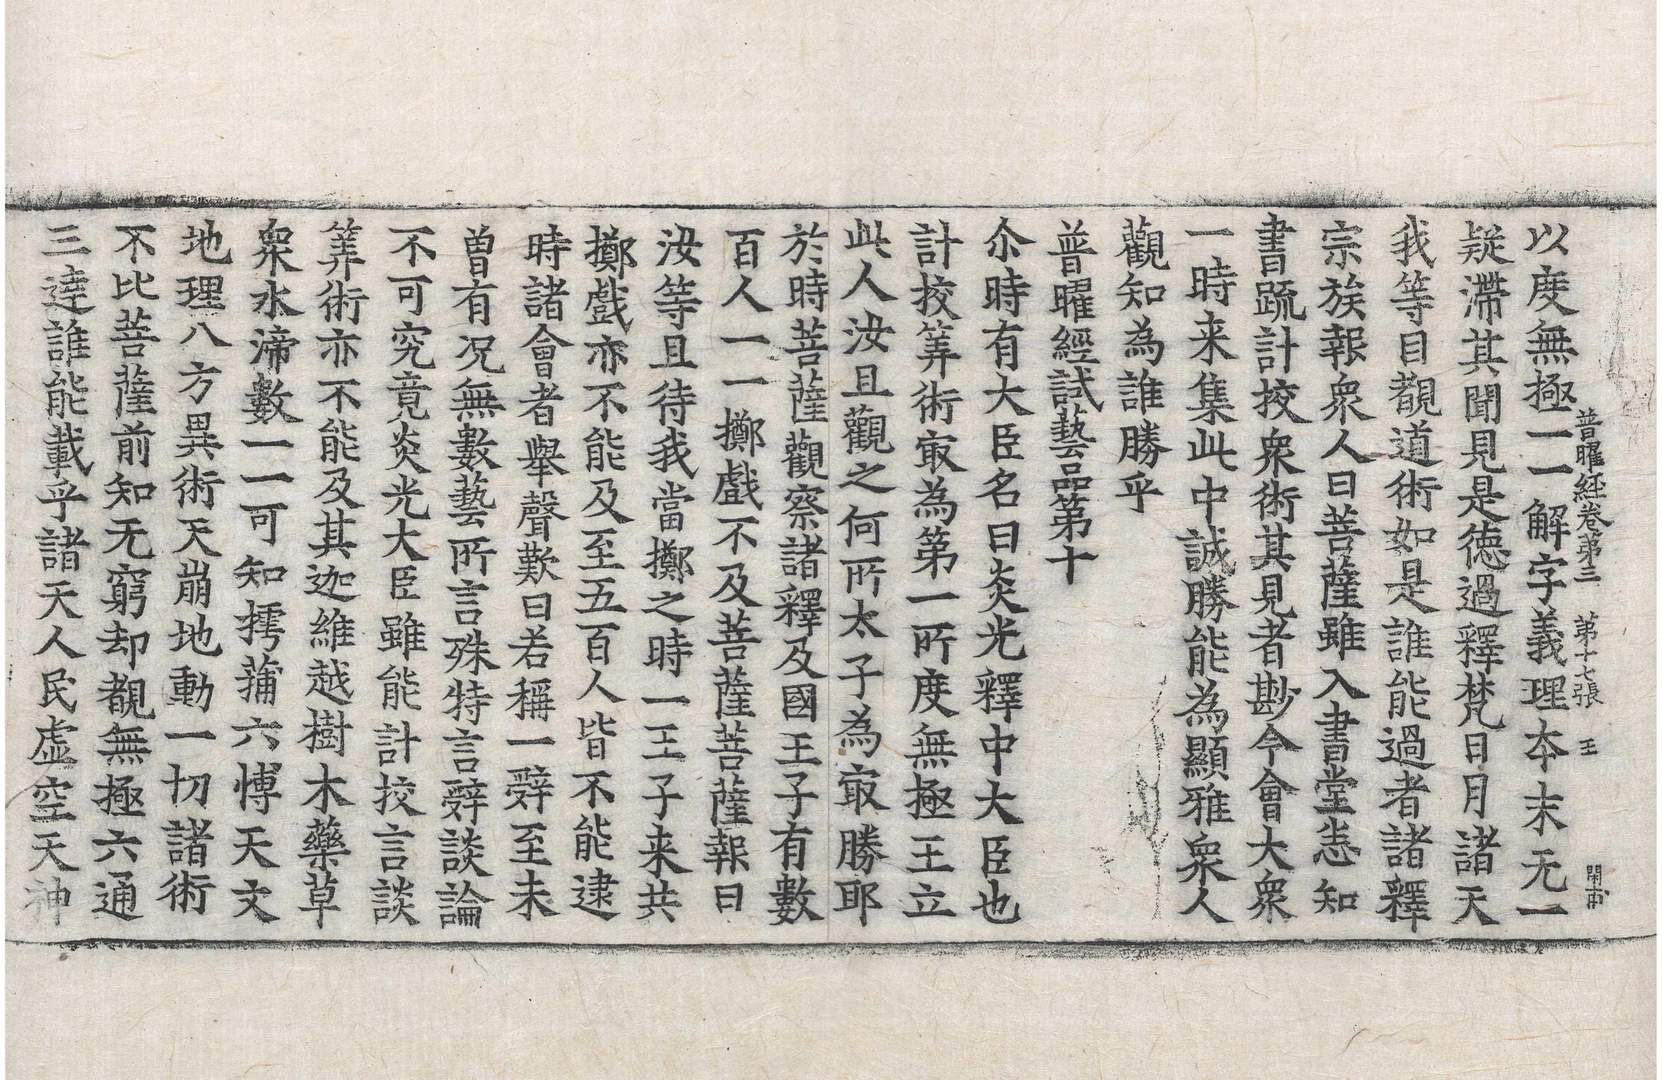 普曜經卷第三　第十七張　王
以度無極一一解字義理夲末无一
疑滯其聞見是德過釋梵日月諸天
我等目覩道術如是誰能過者諸釋
宗族報衆人曰菩薩雖入書堂悉知
書䟽計挍衆術其見者尠今會大衆
一時来集此中誠勝能為顯雅衆人
觀知為誰勝乎
普曜經試藝品第十
尒時有大臣名曰炎光釋中大臣也
計挍筭術㝡為第一所度無極王立
此人汝且觀之何所太子為㝡勝耶
於時菩薩觀察諸釋及國王子有數
百人一一擲戲不及菩薩菩薩報曰
汝等且待我當擲之時一王子来共
擲戲亦不能及至五百人皆不能逮
時諸會者舉聲歎曰若稱一辤至未
曾有况無數藝所言殊特言辤談論
不可究竟炎光大臣雖能計挍言談
筭術亦不能及其迦維越樹木藥草
衆水渧數一一可知摴蒱六愽天文
地理八方異術天崩地動一切諸術
不比菩薩前知无窮却覩無極六通
三達誰能載乎諸天人民虚空天神